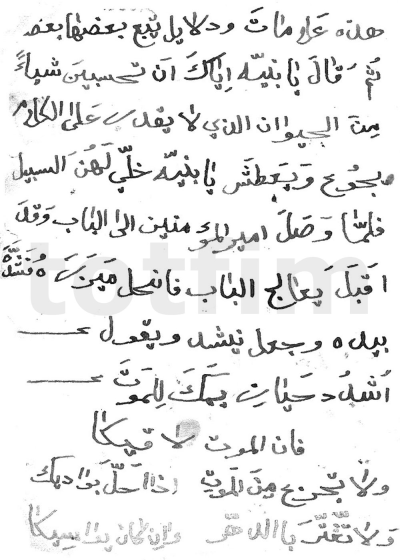 هذه علامات ودلايل يتبع بعضها بعض
ثم قال يا بنيه اياك ان تحسبين شياً
من الحيوان الذي لا يقدر على الكلام
يجوع ويعطش يا بنيه خلّي لهن السبيل
فلمّا وصل امير المؤمنين الى الباب وقد
اقبل يعالج الباب فانحل ميزره فشدّه
بيده وجعل ينشد ويقول
اشدد حيازيمك للموت
فان الموت لا قيكا
ولا تجزع من الموت اذا حلّ بواديكا
ولا تغترّ بالدهر وان كان يواسيكا
totfim